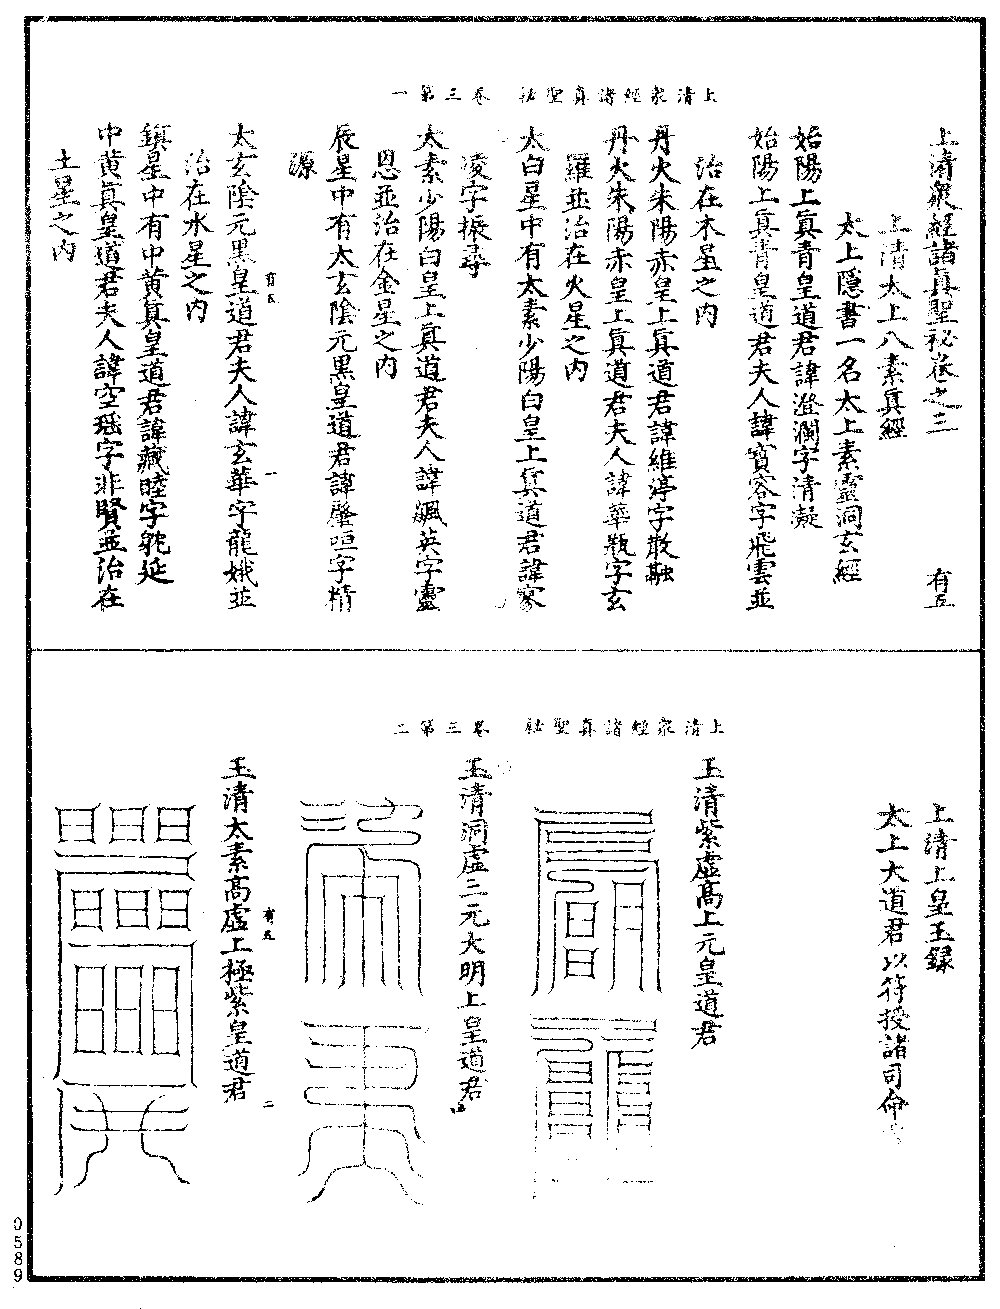 上清衆經諸真聖秘　卷三第一
上清衆經諸真聖祕卷之三　有五
上清太上八素真經
太上隱書一名太上素靈洞玄經
始陽上真青皇道君諱澄瀾字清凝
始陽上真青皇道君夫人諱寶容字飛雲並
治在木星之内
丹火朱陽赤皇上真道君諱維渟字散融
丹火朱陽赤皇上真道君夫人諱華瓶字玄
羅並治在火星之内
太白星中有太素少陽白皇上真道君諱寥
凌字振尋
太素少陽白皇上真道君夫人諱飆英字靈
恩並治在金星之内
辰星中有太玄陰元黑皇道君諱啓晅字精
源
有五　一
太玄陰元黑皇道君夫人諱玄華字龍娥並
治在水星之内
鎮星中有中黄真皇道君諱藏睦字躭延
中黄真皇道君夫人諱空瑶字非賢並治在
土星之内
上清衆經諸真聖秘　卷三第二
上清上皇玉録
太上大道君以符授諸司命
玉清紫虚高上元皇道君
玉清洞虚三元大明上皇道君
有五　二
玉清太素高虚上極紫皇道君
0589